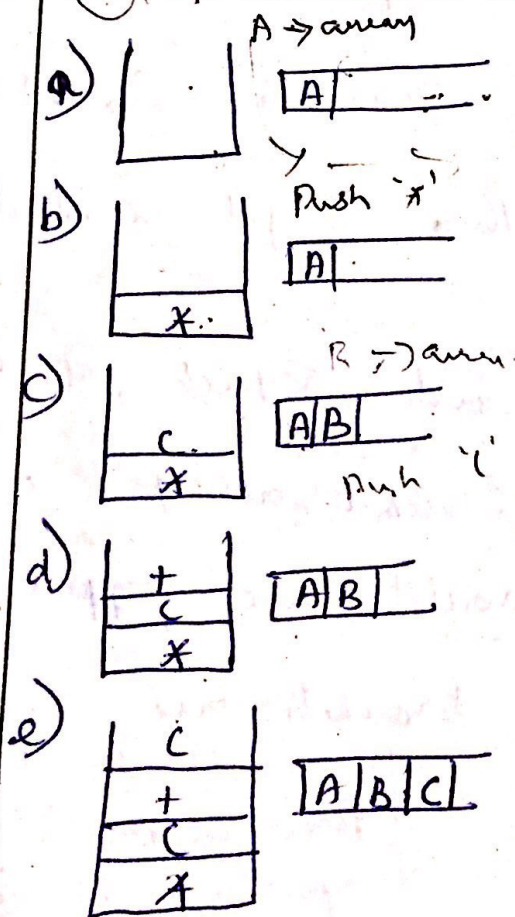 A → array
a) A
Push '*'
b) A
*
B → array
c) A B
(
*
Push '('
d) + A B
(
*
e) ( A B C
+
(
*